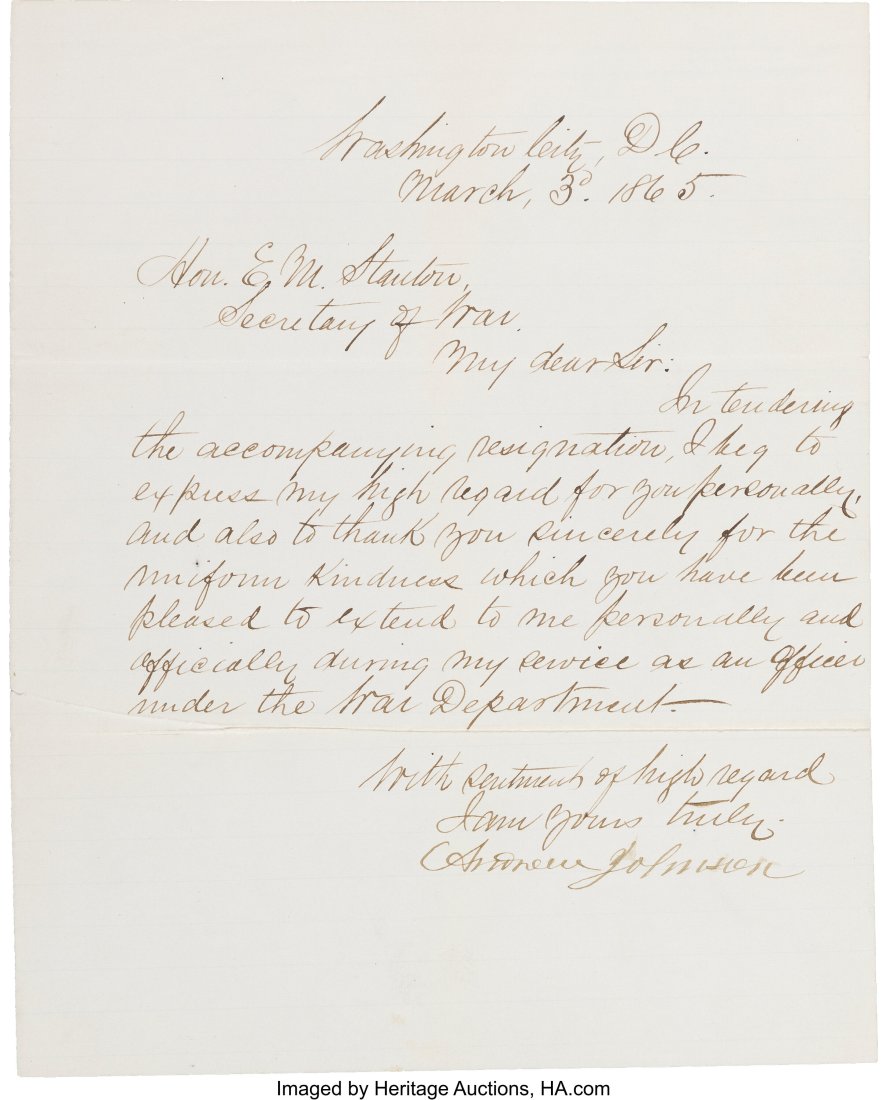 Washington City, D C.
March, 3d. 1865.
Hon. E. M. Stanton,
Secretary of War.
My dear Sir:
In tendering
the accompanying resignation, I beg to
express my high regard for you personally,
and also to thank you sincerely for the
uniform kindness which you have been
pleased to extend to me personally and
officially during my service as an officer
under the War Department.—
With sentiments of high regard
I am yours truly.
Andrew Johnson
Imaged by Heritage Auctions, HA.com